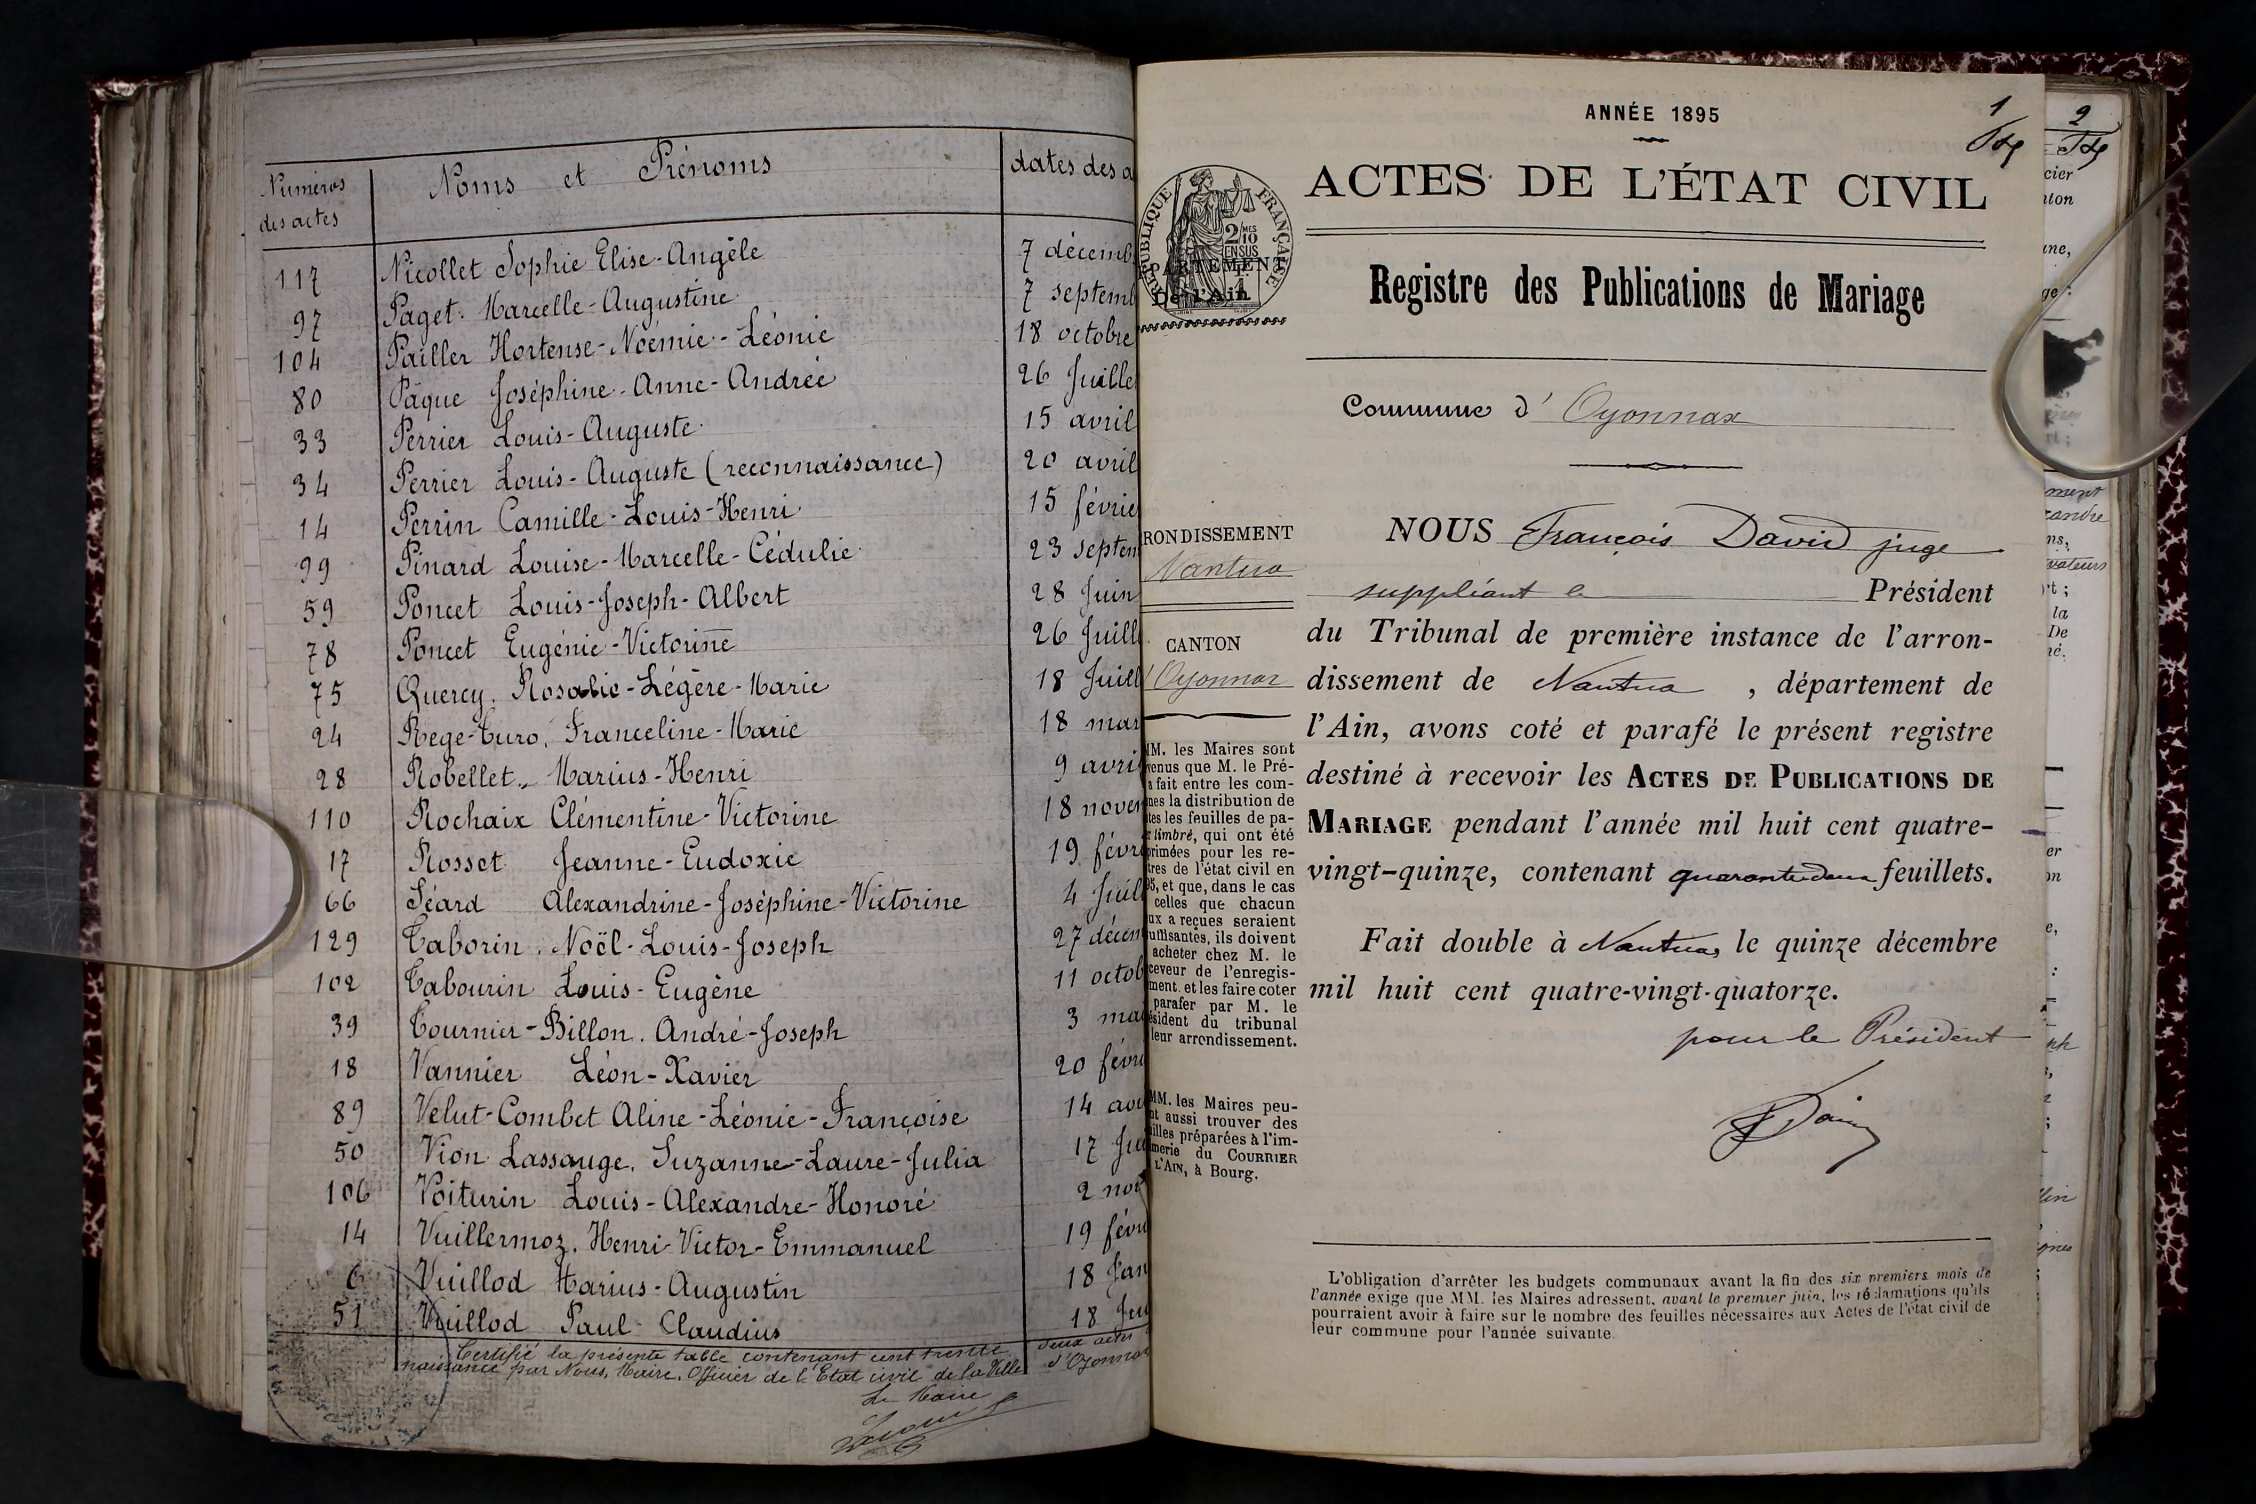 Numéros des actes Noms et Prénoms dates des a
117 Nicollet Sophie Elise-Angèle 7 décemb
97 Paget. Marcelle-Augustine 7 septemb
104 Pailler Hortense-Noémie-Léonie 18 octobre
80 Pâque Joséphine-Anne-Andrée 26 Juille
33 Perrier Louis-Auguste. 15 avril
34 Perrier Louis-Auguste (reconnaissance) 20 avril
14 Perrin Camille-Louis-Henri 15 févrie
99 Pinard Louise-Marcelle-Cédulie 23 septem
59 Poncet Louis-Joseph-Albert 28 Juin
78 Poncet Eugénie-Victorine 26 Juill
75 Quercy. Rosalie-Légère-Marie 18 Juill
24 Rege-Turo, Franceline-Marie 18 mar
28 Robellet. Marius-Henri 9 avri
110 Rochaix Clémentine-Victorine 18 noven
17 Rosset Jeanne-Eudoxie 19 févr
66 Séard Alexandrine-Joséphine-Victorine 4 Juil
129 Taborin. Noël-Louis-Joseph 27 décem
102 Tabourin Louis-Eugène 11 octob
39 Tournier-Billon. André-Joseph 3 ma
18 Vannier Léon-Xavier 20 févr
89 Velut-Combet Aline-Léonie-Françoise 14 aou
50 Vion Lassauge. Suzanne-Laure-Julia 17 Ju
106 Voiturin Louis-Alexandre-Honoré 2 nov
14 Vuillermoz. Henri-Victor-Emmanuel 19 févr
6 Vuillod Marius-Augustin 18 Jan
51 Vuillod Paul Claudius 18 Ju
Certifié la présente table contenant cent trente deux actes
naissance par Nous, Maire, Officier de l'Etat civil de la Ville d'Oyonnax
Le Maire
ANNÉE 1895
1
ACTES DE L'ÉTAT CIVIL
RÉPUBLIQUE FRANÇAISE
2/10 MES EN SUS
PARTEMENT
De l'Ain
Registre des Publications de Mariage
Commune d'Oyonnax
RONDISSEMENT
Nantua
CANTON
Oyonnax
MM. les Maires sont
venus que M. le Pré-
a fait entre les com-
nes la distribution de
tes les feuilles de pa-
r timbré, qui ont été
primées pour les re-
tres de l'état civil en
95, et que, dans le cas
celles que chacun
ux a reçues seraient
uffisantes, ils doivent
acheter chez M. le
ceveur de l'enregis-
ment. et les faire coter
parafer par M. le
ésident du tribunal
leur arrondissement.
MM. les Maires peu-
nt aussi trouver des
illes préparées à l'im-
merie du COURRIER
L'AIN, à Bourg.
NOUS François David juge
suppléant le Président
du Tribunal de première instance de l'arron-
dissement de Nantua, département de
l'Ain, avons coté et parafé le présent registre
destiné à recevoir les ACTES DE PUBLICATIONS DE
MARIAGE pendant l'année mil huit cent quatre-
vingt-quinze, contenant quarante deux feuillets.
Fait double à Nantua, le quinze décembre
mil huit cent quatre-vingt-quatorze.
pour le Président
L'obligation d'arrêter les budgets communaux avant la fin des six premiers mois de
l'année exige que MM. les Maires adressent, avant le premier juin, les réclamations qu'ils
pourraient avoir à faire sur le nombre des feuilles nécessaires aux Actes de l'état civil de
leur commune pour l'année suivante.
2
cier
nton